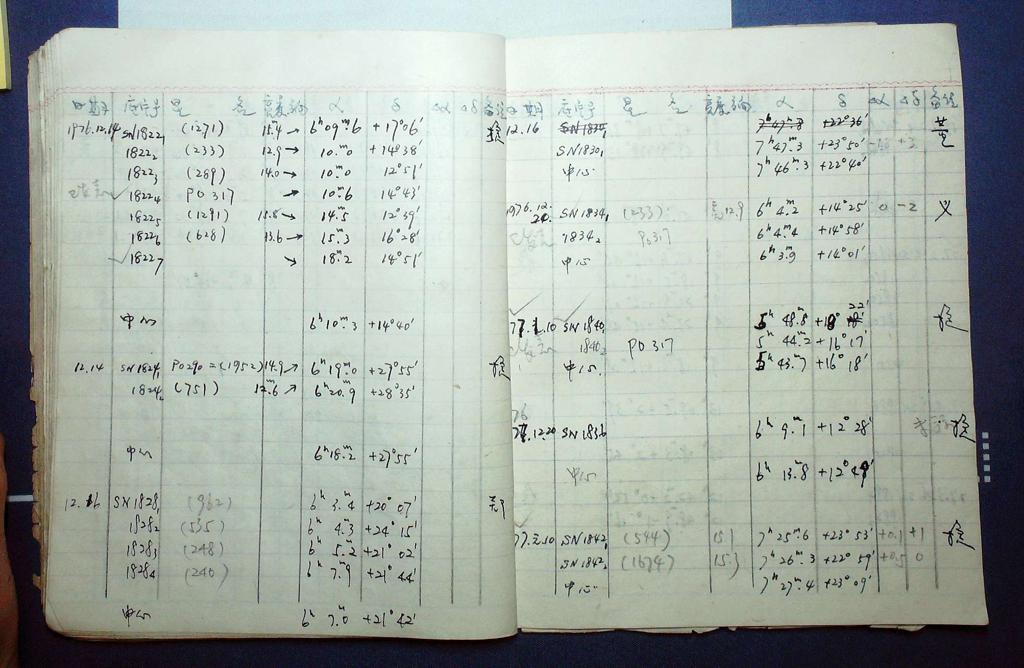 日期 序字号 星 名 亮度 α δ Δα Δδ 备注
1976.12.14 SN1822₁ (1271) 15.4 → 6ʰ09ᵐ.6 +17°06′
1822₂ (233) 12.9 → 10ᵐ.0 +14°38′
1822₃ (289) 14.0 → 10ᵐ.0 12°51′
1822₄ PO317 → 10ᵐ.6 14°43′
1822₅ (1291) 15.8 → 14ᵐ.5 12°39′
1822₆ (628) 13.6 → 15ᵐ.3 16°28′
1822₇ → 18ᵐ.2 14°51′
中心 6ʰ10ᵐ.3 +14°40′
12.14 SN1824₁ PO290=(1952) 14.9 → 6ʰ19ᵐ.0 +27°55′
1824₂ (751) 12.6 → 6ʰ20ᵐ.9 +28°35′
中心 6ʰ18ᵐ.2 +27°55′
12.16 SN1828₁ (962) 6ʰ3ᵐ.4 +20°07′
1828₂ (535) 6ʰ4ᵐ.3 +24°15′
1828₃ (248) 6ʰ5ᵐ.2 +21°02′
1828₄ (240) 6ʰ7ᵐ.9 +21°44′
中心 6ʰ7ᵐ.0 +21°42′
日期 序字号 星 名 亮度 α δ Δα Δδ 备注
12.16
SN1830₁ 7ʰ47ᵐ.3 +23°50′
中心 7ʰ46ᵐ.3 +22°40′
1976.12.20. SN1834₁ (233) 12.9 6ʰ4ᵐ.2 +14°25′ 0 -2 义
1834₂ PO317 6ʰ4ᵐ.4 +14°58′
中心 6ʰ3ᵐ.9 +14°01′
77.1.10 SN1840₁ 5ʰ48ᵐ.8 +18°22′
1840₂ PO317 5ʰ44ᵐ.2 +16°17′
中心 5ʰ43ᵐ.7 +16°18′
76.12.20 SN1836 6ʰ9ᵐ.1 +12°28′
中心 6ʰ13ᵐ.8 +12°49′
77.2.10 SN1842₁ (544) 15.1 7ʰ25ᵐ.6 +23°53′ +0.1 +1
SN1842₂ (1674) 15.3 7ʰ26ᵐ.3 +22°59′ +0.5 0
中心 7ʰ27ᵐ.4 +23°09′